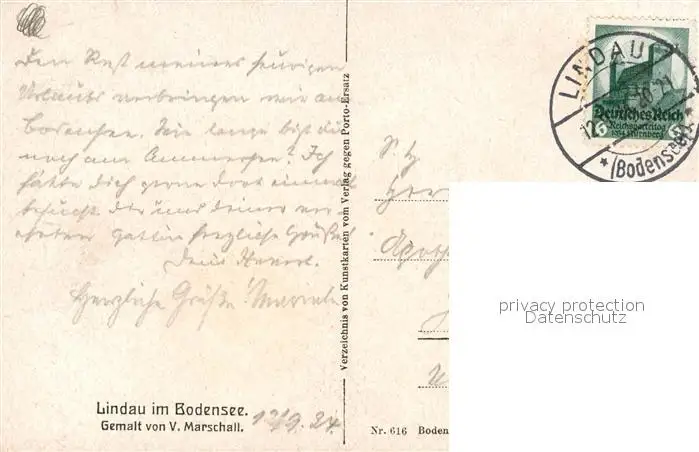 Den Rest meines heurigen
Urlaubs verbringen wir am
Bodensee. Wie lange bist du
noch am Ammersee? Ich
hätte dich gerne dort einmal
besucht. Dir und deiner ver
ehrten Gattin herzliche Grüße
Dein
Herzliche Grüße
Lindau im Bodensee.
Gemalt von V. Marschall.
Verzeichnis von Kunstkarten vom Verlag gegen Porto-Ersatz
LINDAU
(Bodensee)
Deutsches Reich
Reichsparteitag
1934 Nürnberg
6
Apoth
Nr. 616 Boden
privacy protection
Datenschutz